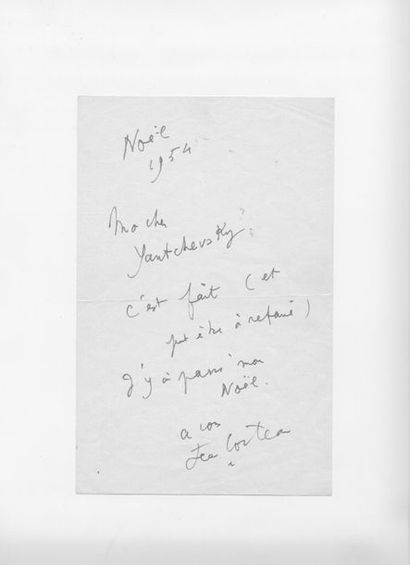 Noël
1954
Mo cher
Yantchevsky
c'est fait (et
put être à refaire)
J'y ai passé mon
Noël.
a vous
Jean Cocteau